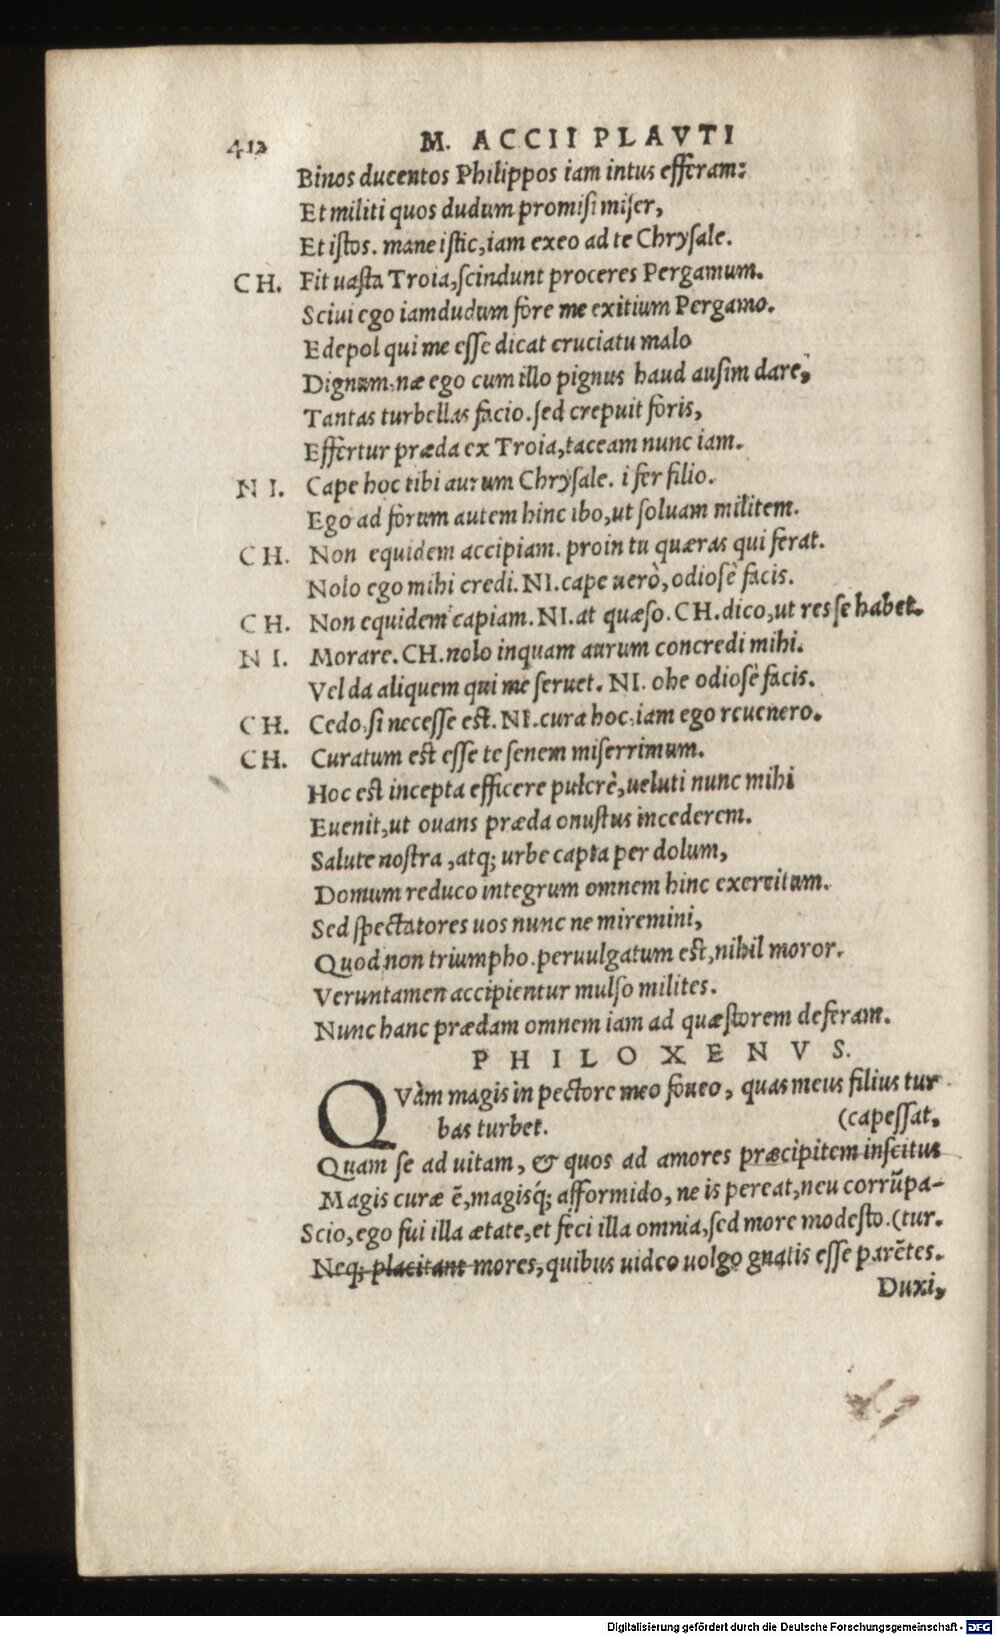 412 M. ACCII PLAVTI
Binos ducentos Philippos iam intus efferam:
Et militi quos dudum promisi miser,
Et istos. mane istic, iam exeo ad te Chrysale.
CH. Fit uasta Troia, scindunt proceres Pergamum.
Sciui ego iamdudum fore me exitium Pergamo.
Edepol qui me esse dicat cruciatu malo
Dignum, næ ego cum illo pignus haud ausim dare,
Tantas turbellas facio. sed crepuit foris,
Effertur præda ex Troia, taceam nunc iam.
NI. Cape hoc tibi aurum Chrysale. i fer filio.
Ego ad forum autem hinc ibo, ut soluam militem.
CH. Non equidem accipiam. proin tu quæras qui ferat.
Nolo ego mihi credi. NI. cape uerò, odiosè facis.
CH. Non equidem capiam. NI. at quæso. CH. dico, ut res se habet.
NI. Morare. CH. nolo inquam aurum concredi mihi.
Vel da aliquem qui me seruet. NI. ohe odiosè facis.
CH. Cedo, si necesse est. NI. cura hoc, iam ego reuenero.
CH. Curatum est esse te senem miserrimum.
Hoc est incepta efficere pulcrè, ueluti nunc mihi
Euenit, ut ouans præda onustus incederem.
Salute nostra, atq; urbe capta per dolum,
Domum reduco integrum omnem hinc exercitum.
Sed spectatores uos nunc ne miremini,
Quod non triumpho. peruulgatum est, nihil moror.
Veruntamen accipientur mulso milites.
Nunc hanc prædam omnem iam ad quæstorem deferam.
PHILOXENVS.
QVàm magis in pectore meo foueo, quas meus filius tur
bas turbet. (capessat,
Quam se ad uitam, & quos ad amores præcipitem inscitus
Magis curæ ē, magisq́; afformido, ne is pereat, neu corrũpa-
Scio, ego fui illa ætate, et feci illa omnia, sed more modesto. (tur.
Neq; placitant mores, quibus uideo uolgo gnatis esse parẽtes.
Duxi,
Digitalisierung gefördert durch die Deutsche Forschungsgemeinschaft - DFG